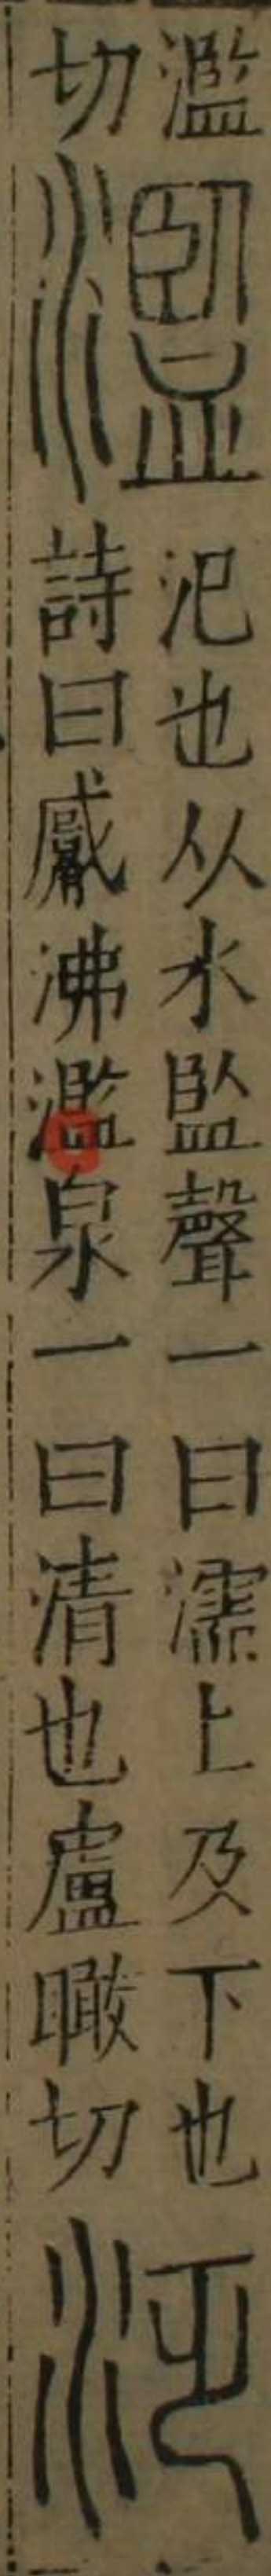 濫
切
濫
氾也从水監聲一曰濡上及下也
詩曰觱沸濫泉一曰清也盧瞰切
氾